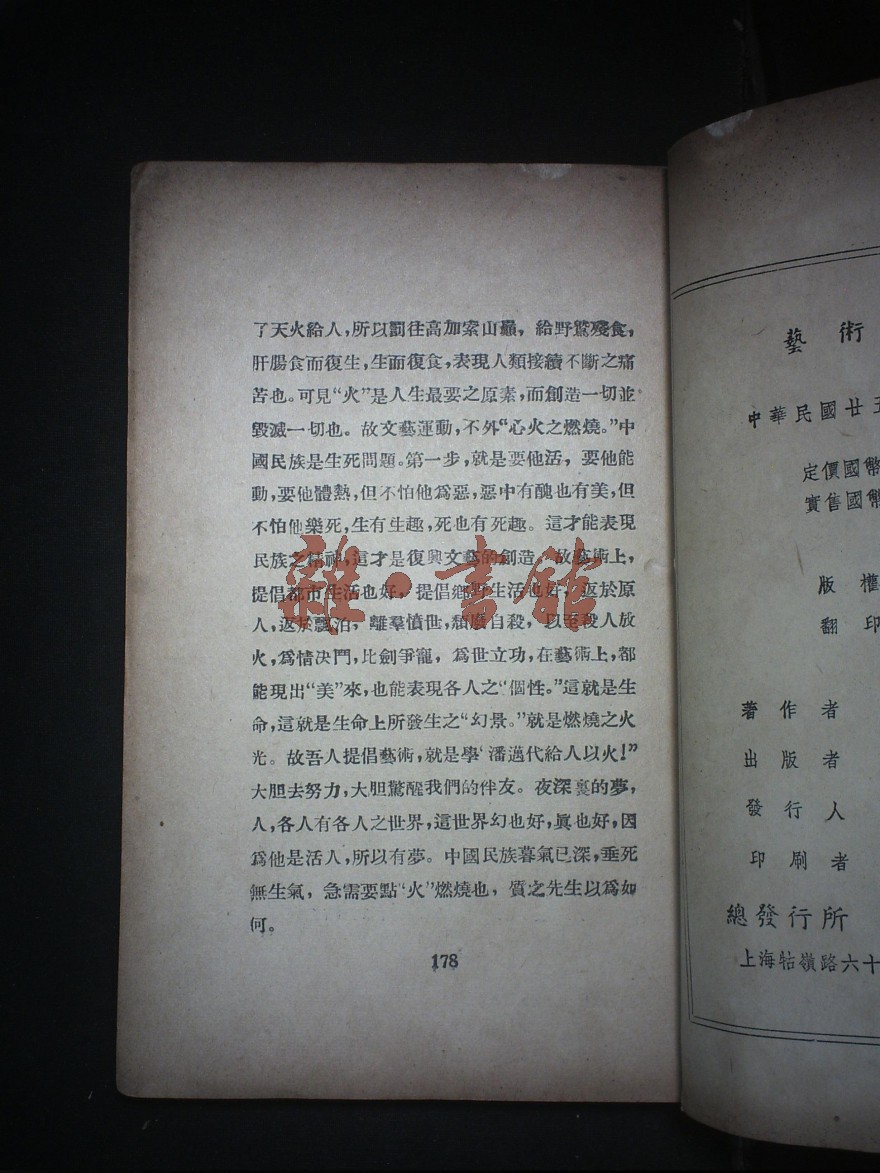 了天火給人，所以罰往高加索山巔，給野鷲殘食，
肝腸食而復生，生而復食，表現人類接續不斷之痛
苦也。可見“火”是人生最要之原素，而創造一切並
毀滅一切也。故文藝運動，不外“心火之燃燒。”中
國民族是生死問題。第一步，就是要他活，要他能
動，要他體熱，但不怕他爲惡，惡中有醜也有美，但
不怕他樂死，生有生趣，死也有死趣。這才能表現
民族之精神，這才是復興文藝的創造。故藝術上，
提倡都市生活也好，提倡鄉野生活也好，返於原
人，返於飄泊，離羣憤世，頹廢自殺，以至殺人放
火，爲情決鬥，比劍爭寵，爲世立功，在藝術上，都
能現出“美”來，也能表現各人之“個性。”這就是生
命，這就是生命上所發生之“幻景。”就是燃燒之火
光。故吾人提倡藝術，就是學‘潘邁代給人以火！”
大胆去努力，大胆驚醒我們的伴友。夜深裏的夢，
人，各人有各人之世界，這世界幻也好，眞也好，因
爲他是活人，所以有夢。中國民族暮氣已深，垂死
無生氣，急需要點“火”燃燒也，質之先生以爲如
何。
178
雜·書館
藝術
中華民國廿五
定價國幣
實售國幣
版權
翻印
著作者
出版者
發行人
印刷者
總發行所
上海牯嶺路六十